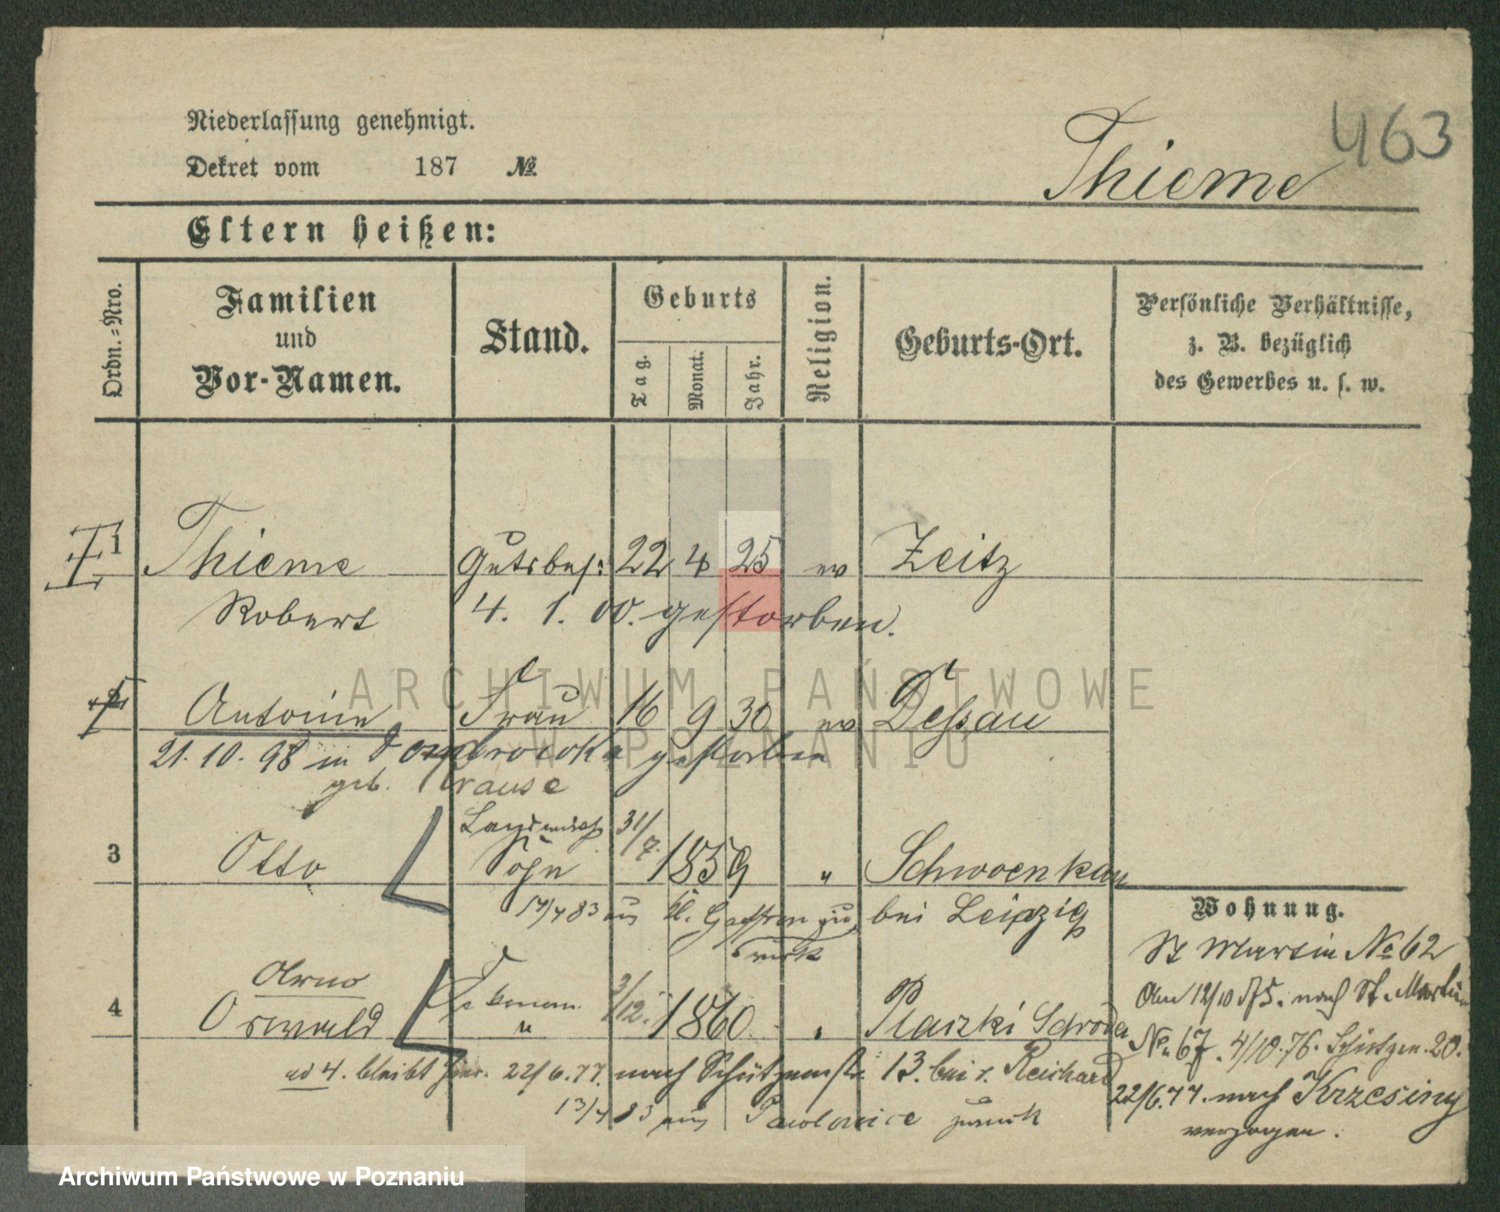 463
Niederlassung genehmigt.
Dekret vom 187 №
Thieme
Eltern heißen:
Ordn.-Nro.
Familien und Vor-Namen.
Stand.
Geburts
Tag.
Monat.
Jahr.
Religion.
Geburts-Ort.
Persönliche Verhältnisse, z. B. bezüglich des Gewerbes u. s. w.
1 Thieme Gutsbes: 22 4 25 ev Zeitz
Robert 4. 1. 00. gestorben.
Antonie Frau 16 9 30 ev Dessau
21. 10. 98 in Dombrowka gestorben
geb. Krause
3 Otto Sohn 31/7. 1859 " Schwoenkau
17/4 83 aus zurück bei Leipzig
Wohnung.
St Martin No 62
Arno
4 Oswald Oekonom " 3/12. 1860 " Placzki Schroda
Am 12/10 75. nach St. Martin
No 67. 4/10.76. Schützen. 20.
ad 4. bleibt hier. 22/6.77. nach Schützenstr 13. bei Reichard
22/6.77. nach Krzesiny
verzogen.
13/4 83 aus Pawlowice zurück
ARCHIWUM PAŃSTWOWE
W POZNANIU
Archiwum Państwowe w Poznaniu